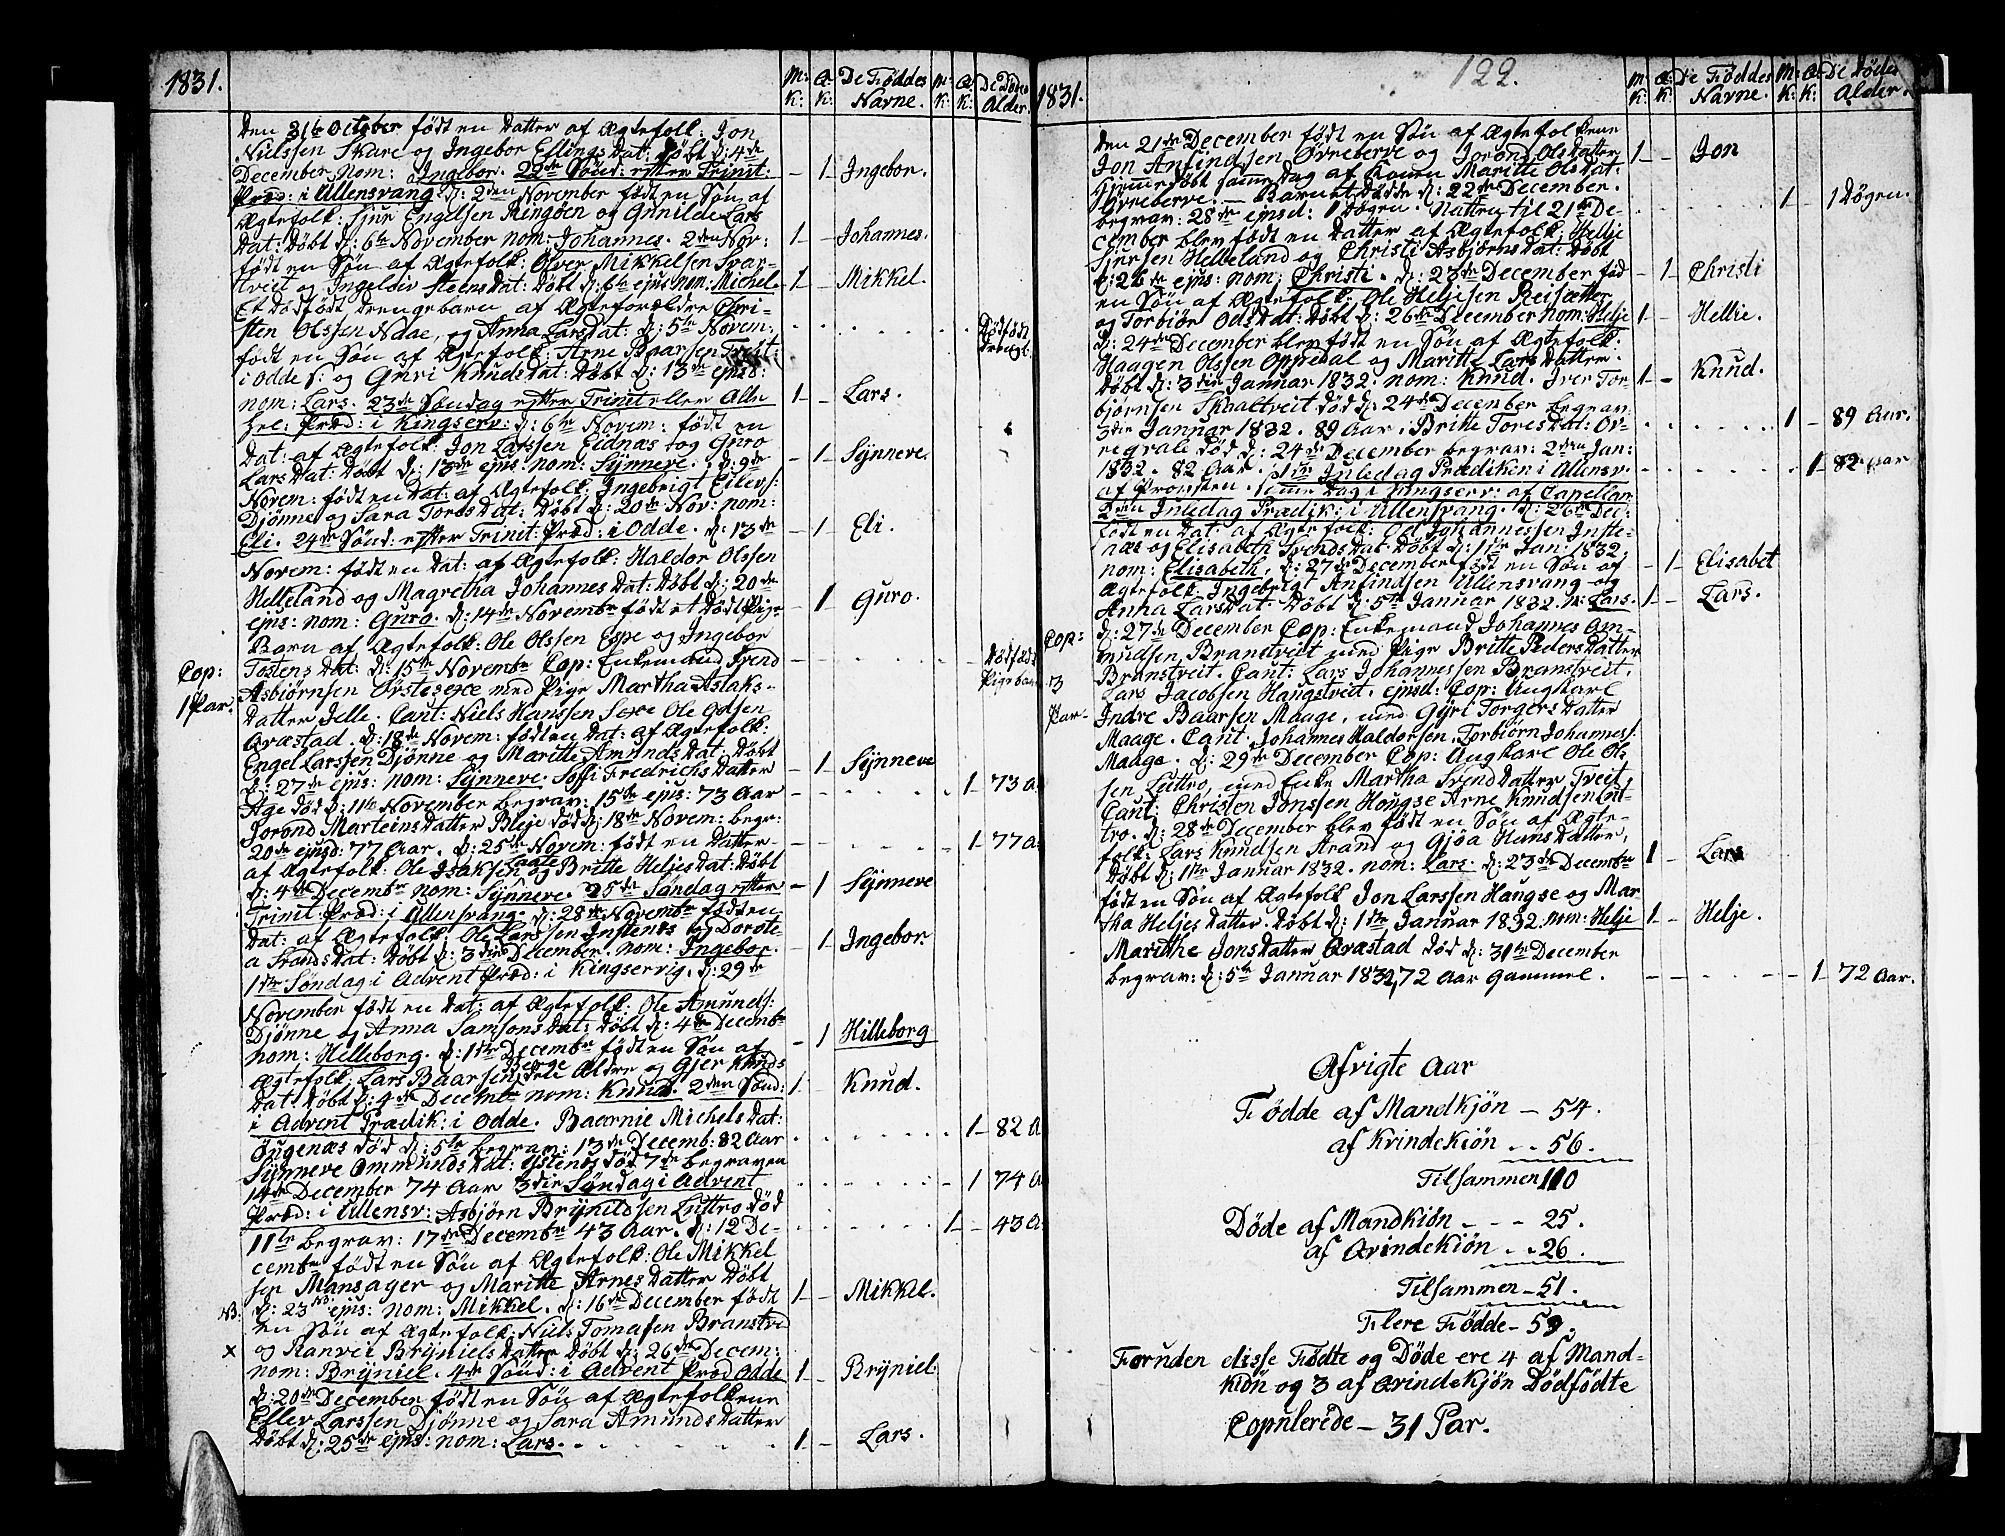 1831.
M: K:
Q: K:
De Fødtes Navne.
M: K:
Q: K:
De Dødes Alder.
Den 31te October født en Datter af Ægtefolk: Jon
Nielssen Skare og Ingebor Ellings Dat: Døbt d: 4de
December nom: Ingebor. 22de Sønd: efter Trinit: – 1 Ingebor.
Præd: i Ullensvang. d: 2den November født en Søn af
Ægtefolk: Siur Engelsen Ringøen og Gunilde Lars
Dat: Døbt d: 6te November nom: Johannes. 2den Nov: 1 – Johannes.
født en Søn af Ægtefolk: Olver Mikkelsen Svar-
tveit og Ingeldev Steens Dat: Døbt d: 6te ejus nom: Michel 1 – Mikkel.
Et Dødfødt Drengebarn af Ægteforældre Chri-
sten Olssen Ndae, og Anna Lars Dat: d: 5te Novem: Dødfødt Drengb.
født en Søn af Ægtefolk: Arne Baarsen Treit:
i Odde S: og Guri Knuds Dat: Døbt d: 13de ejusd:
nom: Lars. 23de Søndag efter Trinit eller Alle 1 – Lars.
hel: Præd: i Kingserv: d: 6te Novem: født en
Dat: af Ægtefolk: Jon Larssen Eidnæs og Guro
Lars Dat: Døbt d: 13de ejus nom: Synneve. d: 9de – 1 Synneve.
Novem: født en Dat: af Ægtefolk: Ingebrigt Eilevs:
Djønne og Sara Tores Dat: Døbt d: 20de Nov: nom:
Eli. 24de Sønd: efter Trinit: Præd: i Odde. d: 13de – 1 Eli.
Novem: født en Dat: af Ægtefolk: Haldor Olssen
Helleland og Magretha Johannes Dat: Døbt d: 20de
ejus: nom: Guro. d: 14de Novembr født et Dødt Pige – 1 Guro.
Barn af Ægtefolk: Ole Olssen Espe og Ingebor
Tostens Dat: d: 15te Novembr Cop: Enkemand Svend Dødfødt Pigebarn
Cop: 1 Par.
Asbjørnsen Ørstesexe med Pige Martha Aslaks-
Datter Jelle. Caut: Niels Hanssen Sexe Ole Olsen
Aræstad. d: 18de Novem: født en Dat: af Ægtefolk:
Engel Larssen Djønne og Maritte Amunds Dat: Døbt
d: 27de ejus: nom: Synneve. Soffi Fredrichs Datter – 1 Synneve
Age død d: 11te November begrav: 15de ejus: 73 Aar 1 – 73 A.
Jorond Marteins Datter Bleje død d: 18de Novem: begr:
20de ejusd: 77 Aar. d: 25de Novem: født en Datter 1 – 77 A.
af Ægtefolk: Ole Isaksen Laate og Britte Heljes Dat: Døbt
d: 4de Decembr nom: Synneve. 25de Søndag efter – 1 Synneve
Trinit: Præd: i Ullensvang. d: 28de Novembr født en
Dat: af Ægtefolk: Ole Larssen Instenes og Dorote-
a Svends Dat: Døbt d: 3die December. nom: Ingebor. – 1 Ingebor.
1ste Søndag i Advent Præd: i Kingservig. d: 29de
November født en Dat: af Ægtefolk: Ole Amunds:
Djønne og Anna Samsons Dat: Døbt d: 4de Decembr
nom: Helleborg. d: 1ste Decembr født en Søn af – 1 Hilleborg
Ægtefolk: Lars Baarsen Aldre og Gjer Knuds
Dat: Døbt d: 4de Decembr nom: Knud. 2den Sønd: 1 – Knud.
i Advent Prædik: i Odde. Baarnie Michels Dat:
Øugenæs død d: 5te begrav: 13de Decemb: 82 Aar 1 – 82 A
Synneve Ommunds Dat: Ystenes død 7de begraven
14de December 74 Aar 3die Søndag i Advent 1 74 A
Præd: i Ullensv: Asbjørn Brynildsen Luttro død
11te begrav: 17de Decembr 43 Aar. d: 12 De- 1 – 43 A.
cembr født en Søn af Ægtefolk: Ole Mikkel
sen Mansager og Maritte Arnes Datter Døbt
NB.
d: 23 ejus: nom: Mikkel. d: 16de December født 1 – Mikkel.
en Søn af Ægtefolk: Niels Tomasen Branstved
x og Ranvei Bryniels Datter Døbt d: 26de Decem:
nom: Bryniel. 4de Sønd: i Advent Præd Odde 1 – Bryniel
d: 20de December født en Søn af Ægtefolkene
Eller Larssen Djønne og Sara Amunds Datter
Døbt d: 25de ejus: nom: Lars. 1 – Lars.
122.
1831.
M: K:
Q: K:
De Fødtes Navne.
M: K:
Q: K:
De Døde Alder.
Den 21de December født en Søn af Ægtefolkene
Jon Anfindsen Øvreberve og Jorond Ols Datter 1 – Jon
Hjemedøbt samme Dag af Konen Maritte Ols Dat:
Øvreberve. – Barnet døde d: 22de December. 1 – 1 Døgen.
begrav: 28de ejusd: 1 Døgen. Natten til 21de De-
cember blev født en Datter af Ægtefolk: Hellje
Sjursen Helleland og Christi Asbjørns Dat: Døbt
d: 26de ejus: nom: Christi. d: 23de December fød – 1 – Christi
en Søn af Ægtefolk: Ole Heljesen Reisæter
og Torbiør Ods Dat: Døbt d: 26de December nom: Helje 1 – Hellie.
d: 24de December blev født en Søn af Ægtefolk:
Haagen Olssen Oppedal og Maritte Lars Datter.
Døbt d: 3die Januar 1832. nom: Knud. Iver Tor- 1 – Knud.
bjørnsen Skaaltveit død d: 24de December begrav
3die Januar 1832. 89 Aar. Britte Tores Dat: Ov- 1 – 89 Aar.
regrale død d: 24de December begrav: 2den Jan:
1832. 82 Aar. 1ste Juledag Prædiken i Ullensv. 1 – 82 Aar
af Provsten. samme Dag i Kingserv: af Capellan
2den Juledag Prædik: i Ullensvang. d: 26de Dec:
født en Dat: af Ægtefolk: Ole Johannessen Inste-
næs og Elisabeth Svends Dat: Døbt d: 1ste Jan: 1832.
nom: Elisabeth. d: 27de December født en Søn af – 1 – Elisabet
Ægtefolk: Ingebrigt Anfindsen Ullensvang og
Anna Lars Dat: Døbt d: 5te Januar 1832. N: Lars. 1 – Lars.
Cop: 3 Par.
d: 27de December Cop: Enkemand Johannes Am-
mudsen Branstveit med Pige Britte Peders Datter
Branstveit. Caut: Lars Johannessen Branstveit,
Lars Jacobsen Haugstveit. ejusd: Cop: Ungkarl
Indre Baarsen Maage, med Gyri Torgers Datter
Maage. Caut: Johannes Haldorsen, Torbiørn Johannes:
Maage. d: 29de December Cop: Ungkarl Ole Ols
sen Luttro, med Enke Martha Svend Datter Treit.
Caut: Christen Jonssen Hougse Arne Knudsen Lut-
tro. d: 28de December blev født en Søn af Ægte-
folk: Lars Knudsen Strand og Gjøa Hans Datter,
Døbt d: 1ste Januar 1832. nom: Lars. d: 23de Decembr 1 – Lars
født en Søn af Ægtefolk Jon Larssen Haugse og Mar-
tha Heljes Datter. Døbt d: 1ste Januar 1832. nom: Helje 1 – Helje.
Marithe Jons Datter Aræstad død d: 31te December
begrav: d: 5te Januar 1832, 72 Aar gammel. 1 – 72 Aar.
Afvigte Aar
Fødde af Mandkjøn – 54.
af Kvindekiøn .. 56.
Tilsammen 110
Døde af Mandkiøn – – – 25.
af Qvindekiøn .. 26.
Tilsammen – 51.
Flere Fødde – 59.
Foruden disse Fødte og Døde ere 4 af Mand-
kiøn og 3 af Qvindekjøn Dødfødte
Copulerede – 31 Par.